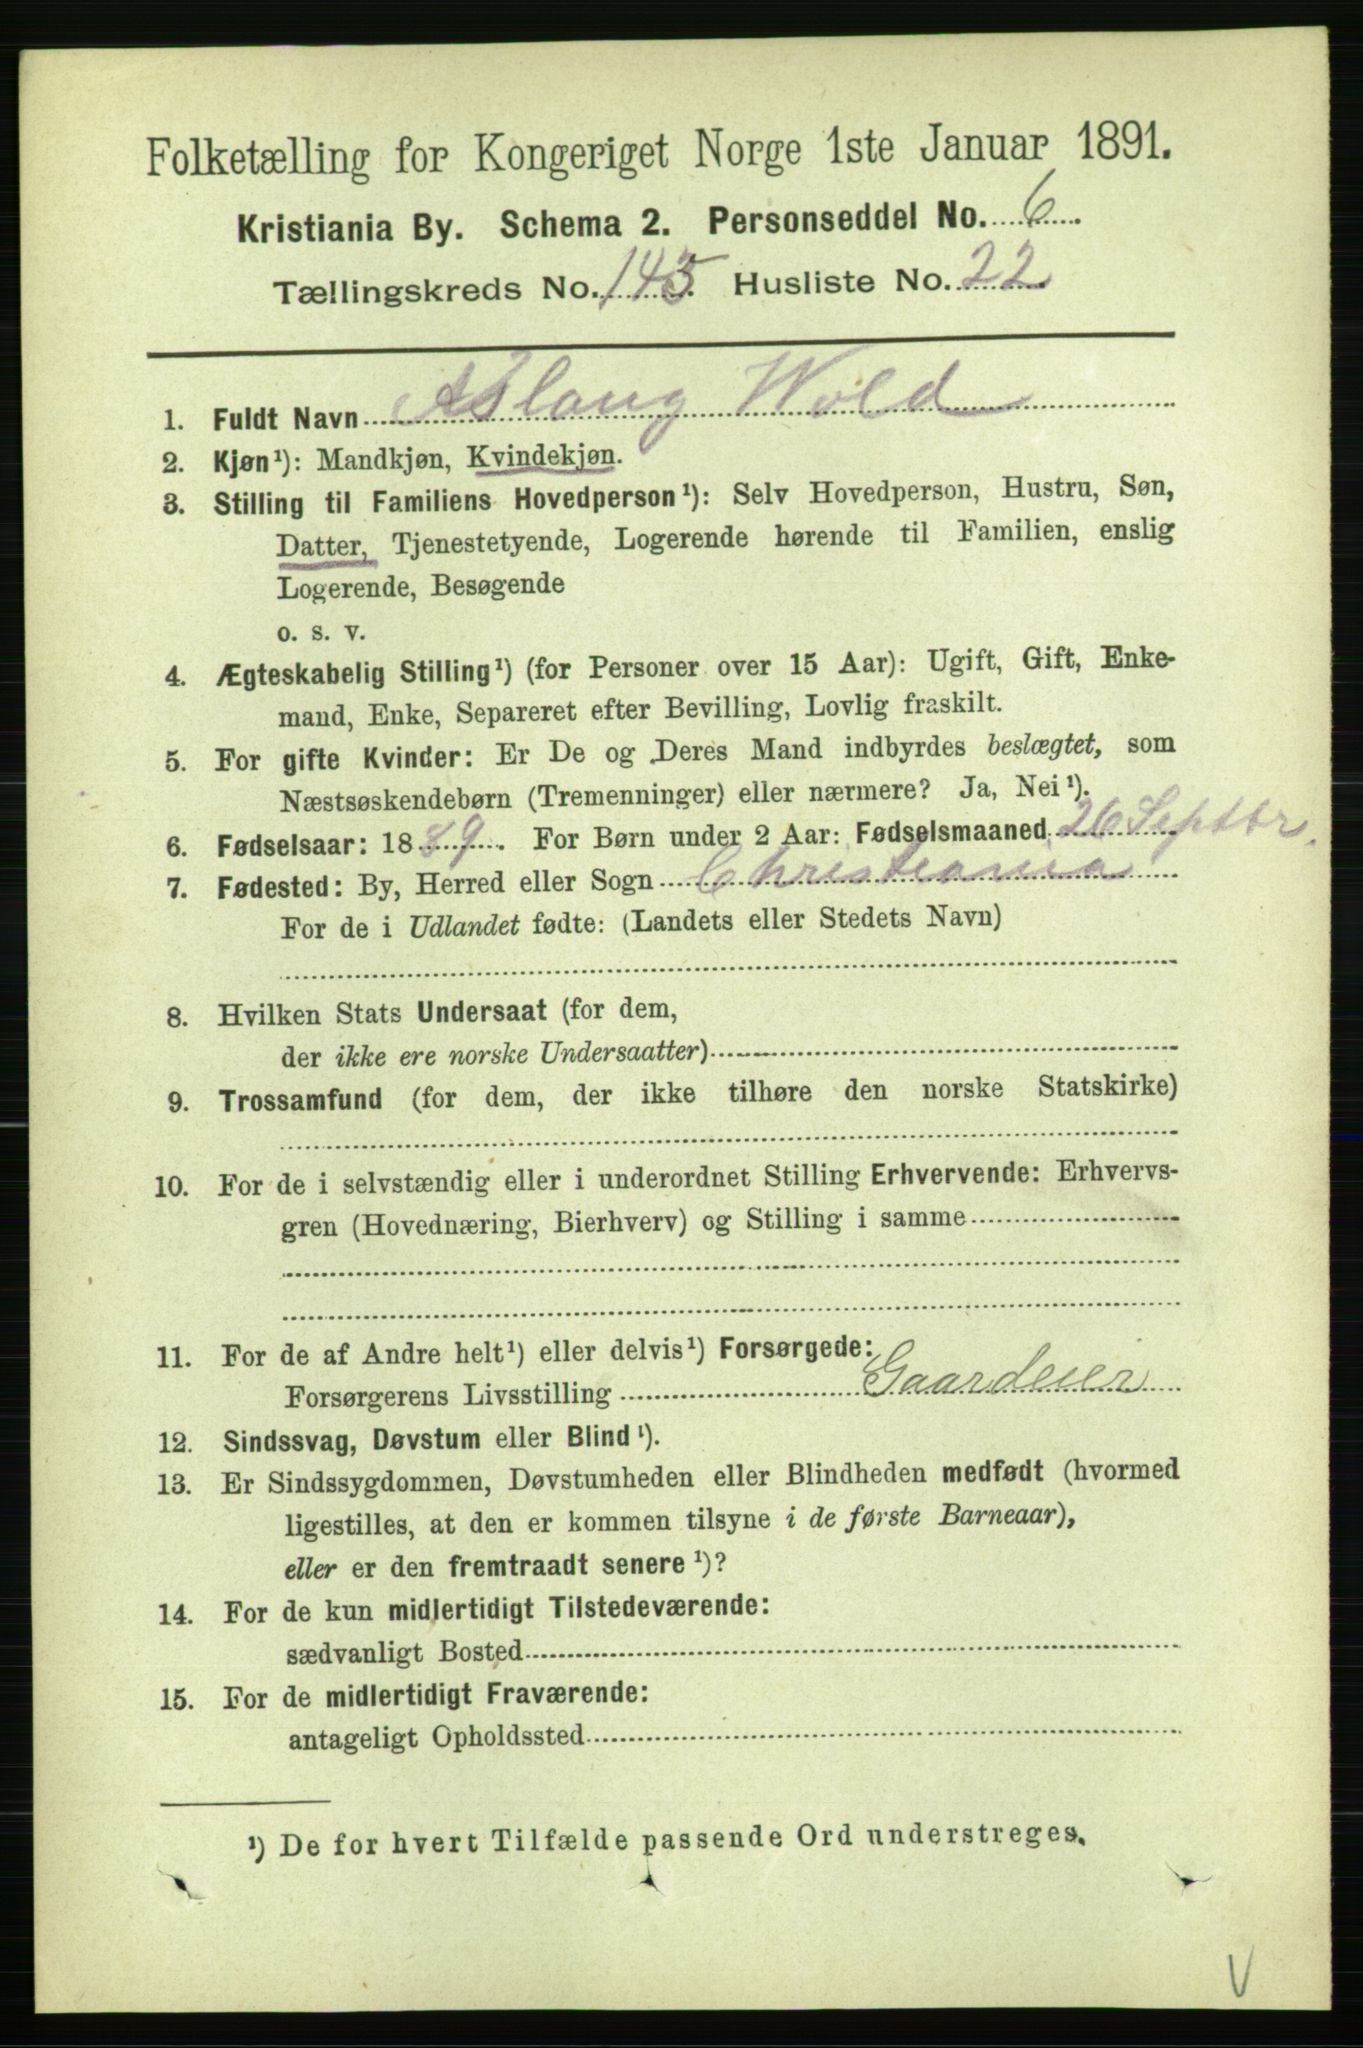 Folketælling for Kongeriget Norge 1ste Januar 1891.
Kristiania By. Schema 2. Personseddel No. 6.
Tællingskreds No. 143. Husliste No. 22
1. Fuldt Navn Aslaug Wold
2. Kjøn¹): Mandkjøn, Kvindekjøn.
3. Stilling til Familiens Hovedperson¹): Selv Hovedperson, Hustru, Søn,
Datter, Tjenestetyende, Logerende hørende til Familien, enslig
Logerende, Besøgende
o. s. v.
4. Ægteskabelig Stilling¹) (for Personer over 15 Aar): Ugift, Gift, Enke-
mand, Enke, Separeret efter Bevilling, Lovlig fraskilt.
5. For gifte Kvinder: Er De og Deres Mand indbyrdes beslægtet, som
Næstsøskendebørn (Tremenninger) eller nærmere? Ja, Nei¹).
6. Fødselsaar: 1889. For Børn under 2 Aar: Fødselsmaaned 26 Septbr.
7. Fødested: By, Herred eller Sogn Christiania
For de i Udlandet fødte: (Landets eller Stedets Navn)
8. Hvilken Stats Undersaat (for dem,
der ikke ere norske Undersaatter)
9. Trossamfund (for dem, der ikke tilhøre den norske Statskirke)
10. For de i selvstændig eller i underordnet Stilling Erhvervende: Erhvervs-
gren (Hovednæring, Bierhverv) og Stilling i samme
11. For de af Andre helt¹) eller delvis¹) Forsørgede:
Forsørgerens Livsstilling Gaardeier
12. Sindssvag, Døvstum eller Blind¹).
13. Er Sindssygdommen, Døvstumheden eller Blindheden medfødt (hvormed
ligestilles, at den er kommen tilsyne i de første Barneaar),
eller er den fremtraadt senere¹)?
14. For de kun midlertidigt Tilstedeværende:
sædvanligt Bosted
15. For de midlertidigt Fraværende:
antageligt Opholdssted
¹) De for hvert Tilfælde passende Ord understreges.
V